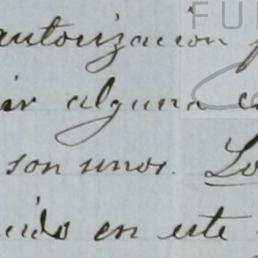 FU
autorizacion
ir alguna
son unos. Lo
en este